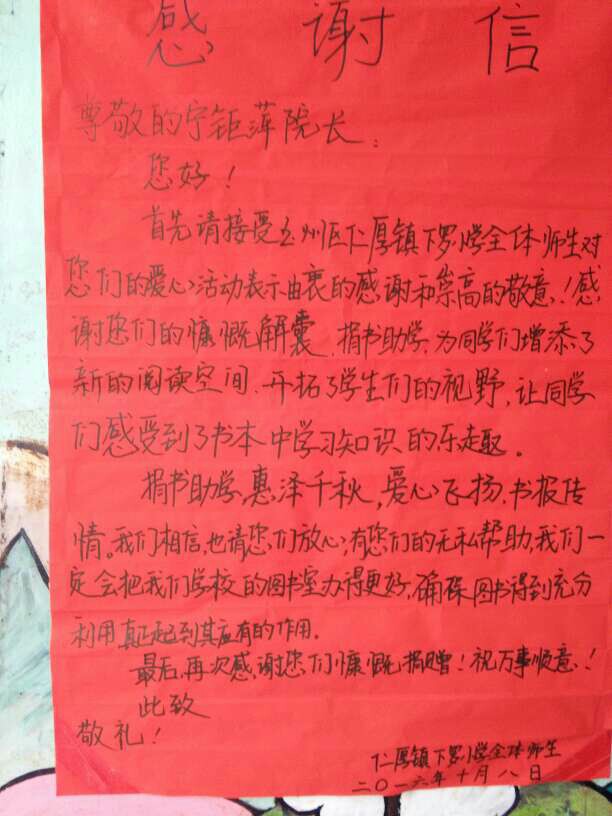 感谢信
尊敬的宁钜萍院长:
您好!
首先请接受玉州区仁厚镇下罗小学全体师生对
您们的爱心活动表示由衷的感谢和崇高的敬意!感
谢您们的慷慨解囊、捐书助学,为同学们增添了
新的阅读空间、开拓了学生们的视野,让同学
们感受到了书本中学习知识的乐趣。
捐书助学,惠泽千秋,爱心飞扬、书报传
情。我们相信,也请您们放心,有您们的无私帮助,我们一
定会把我们学校的图书室办得更好,确保图书得到充分
利用真正起到其应有的作用。
最后,再次感谢您们慷慨捐赠!祝万事顺意!
此致
敬礼!
仁厚镇下罗小学全体师生
二〇一六年十月八日